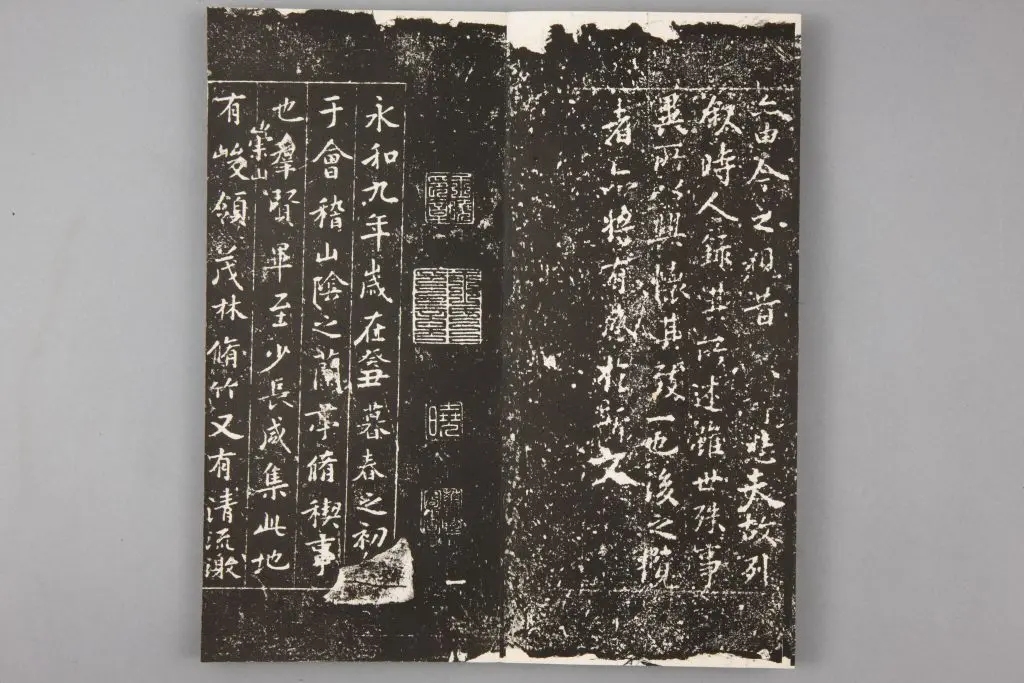 亦由今之視昔悲夫故列
叙時人錄其所述雖世殊事
異所以興懷其致一也後之攬
者亦將有感於斯文
曉
一
永和九年歲在癸丑暮春之初
于會稽山陰之蘭亭脩稧事
也羣賢畢至少長咸集此地
崇山
有峻領茂林脩竹又有清流激